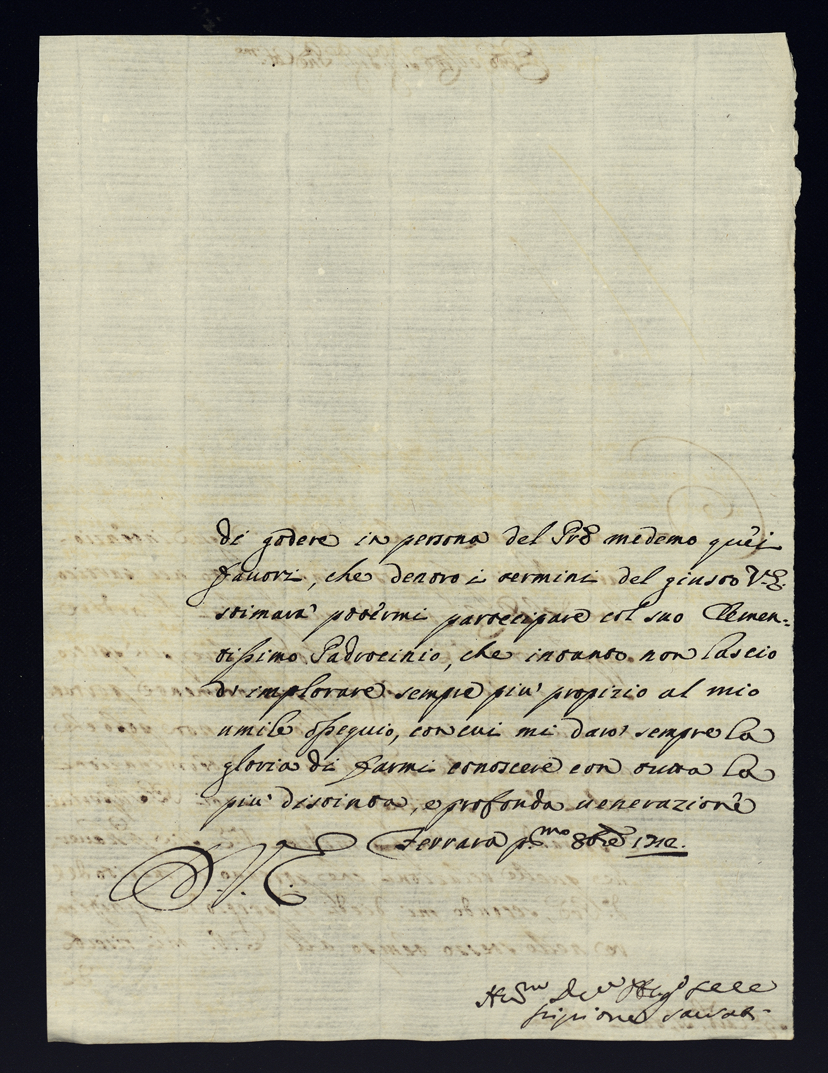 di godere in persona del Prē medemo quei
favori, che dentro i termini del giusto V. E.
stimarà potermi partecipare col suo Clemen-
tissimo Padrocinio, che intanto non lascio
di implorare sempre più propizio al mio
umile ossequio, con cui mi darò sempre la
gloria di farmi conoscere con tutta la
più distinta, e profonda venerazione
D. V. E. Ferrara p.mo 8bre 1712.
Scipione